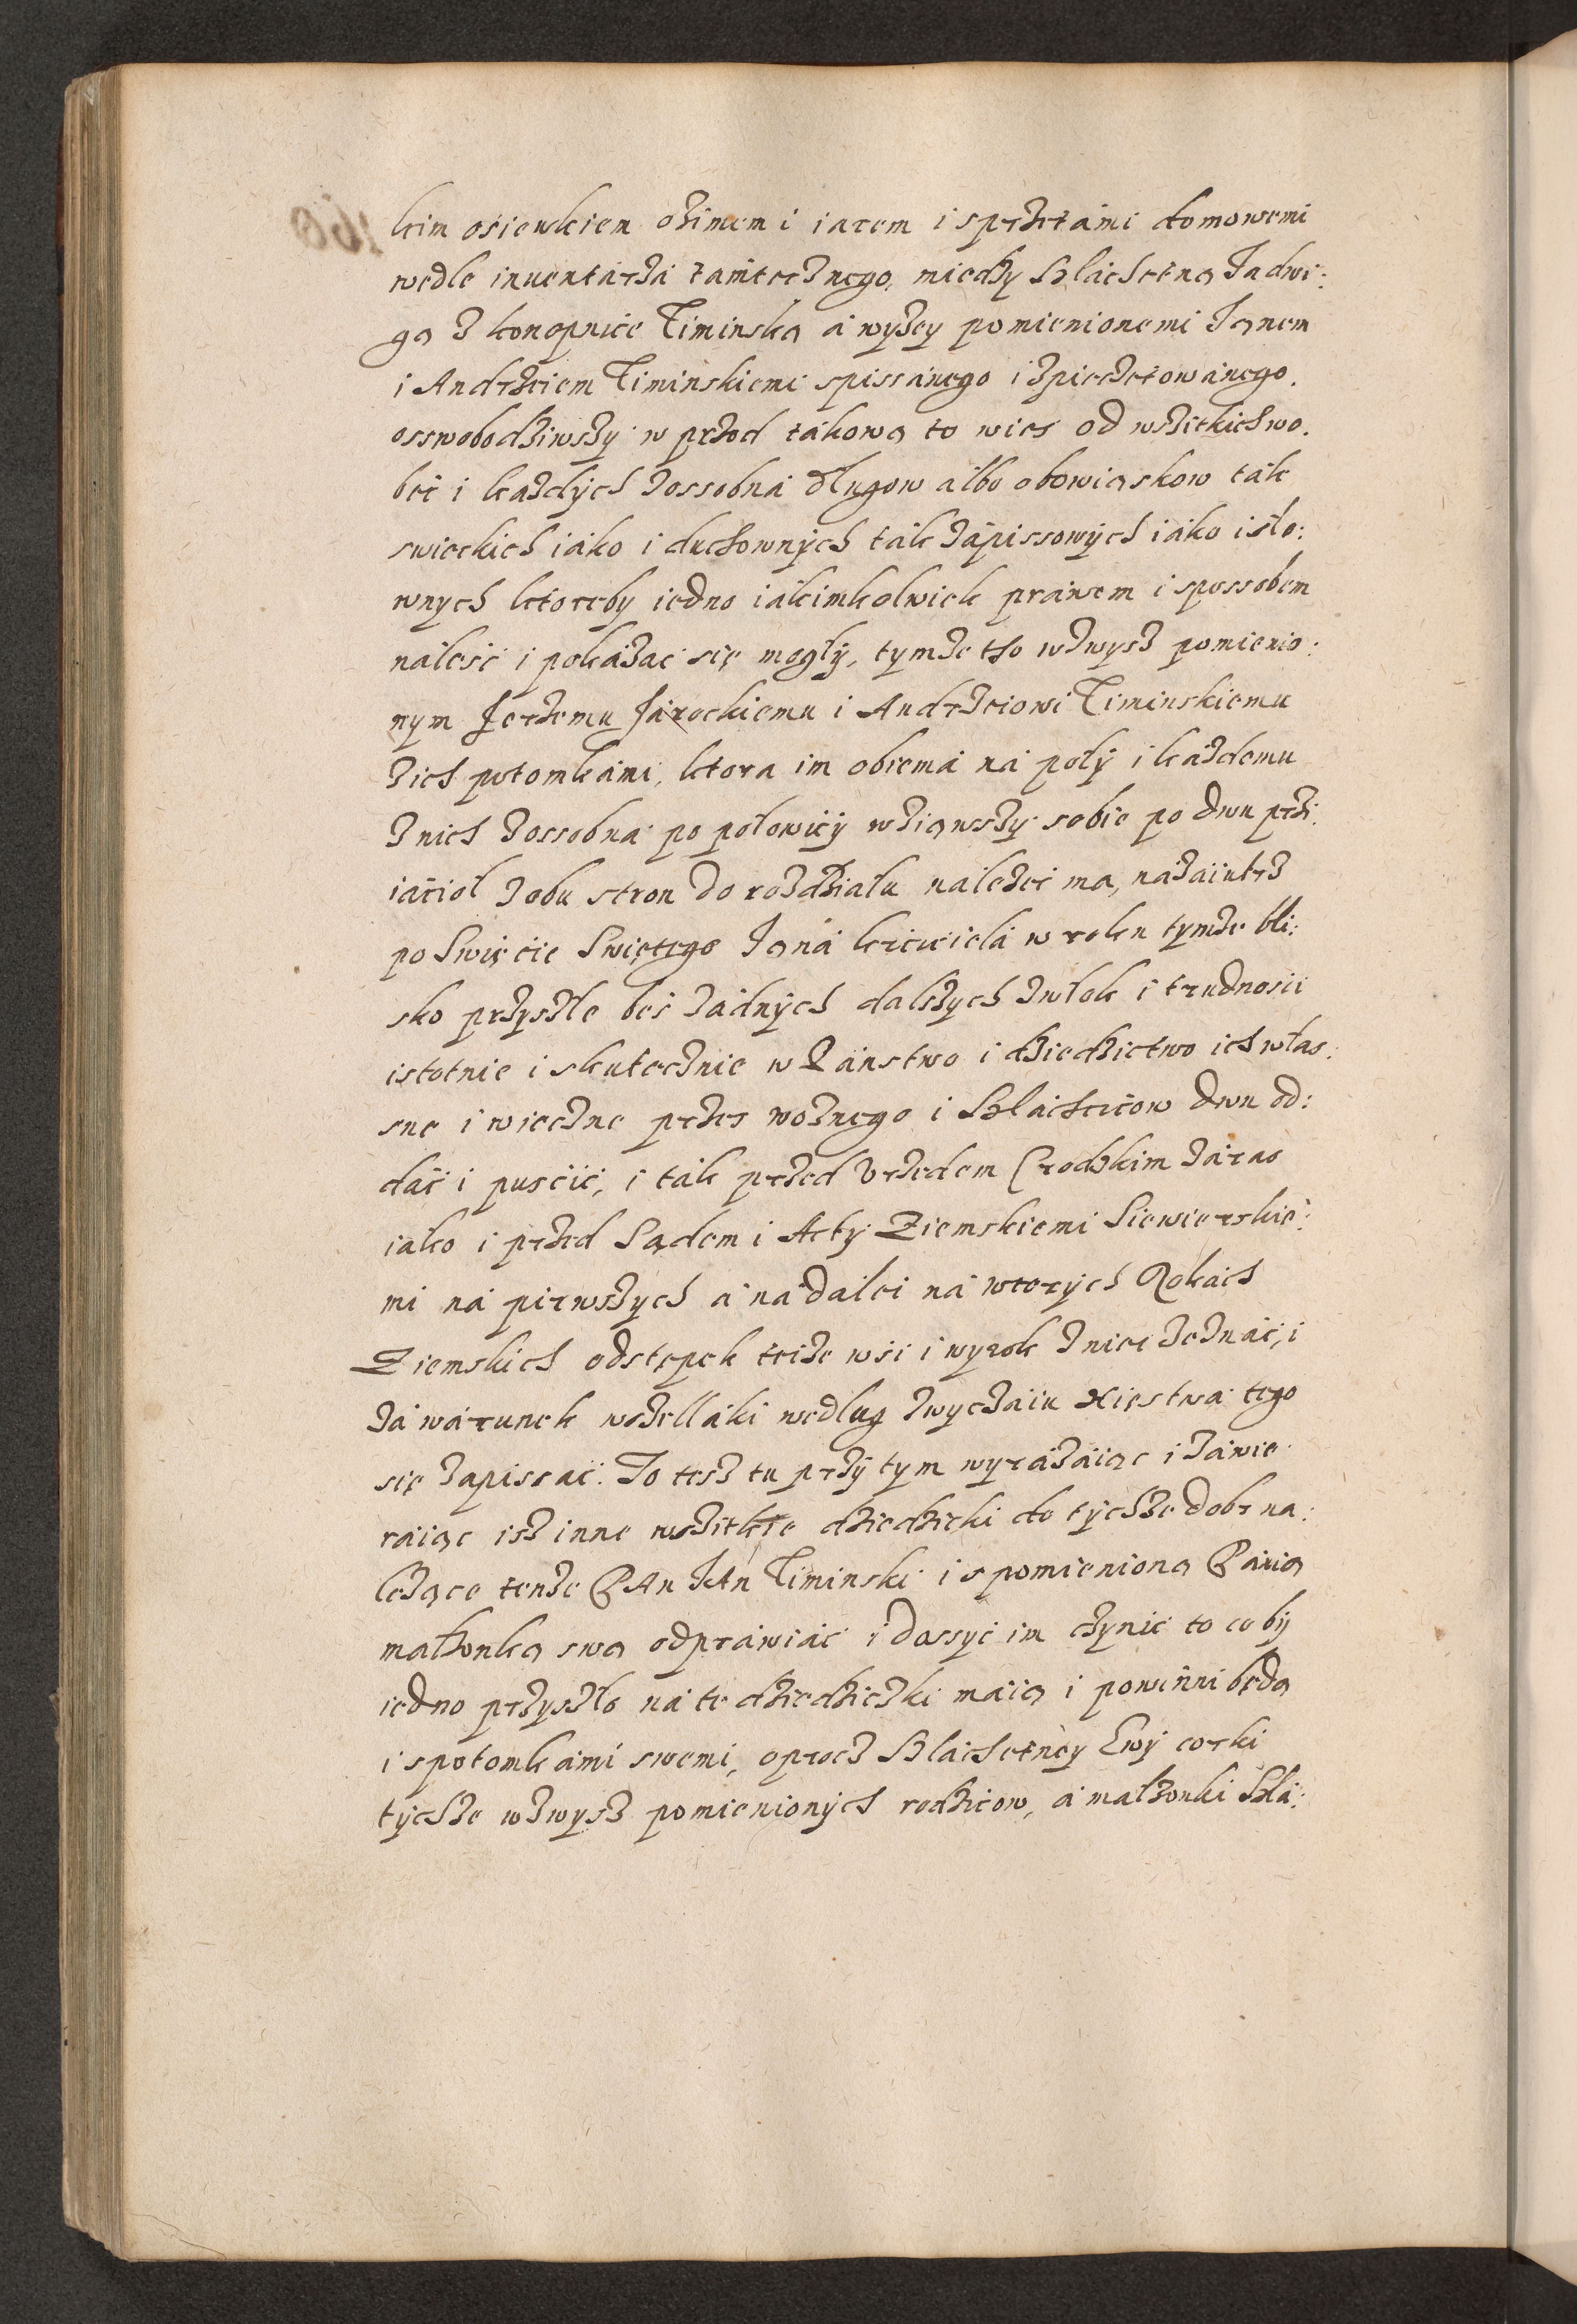 kim osiewkiem ozimem i iarem i sprzetámi domowemi
wedle inuentárzá támtecznego, miedzy Szláchetną Jadwi:
gą z konopnice Ciminską á wyżey pomienionemi Janem
i Andrzeiem Ciminskiemi spissánego i zpieczetowánego.
osswobodziwszy w przod tákową to wies od wszitkich wo.
bec i każdych zossobná długow álbo obowiąskow ták
swieckich iáko i duchownych ták zápissowych iáko i sło:
wnych ktoreby iedno iákimkolwiek práwem i spossobem
náleść i pokázać się mogły, tymże tho wzwysz pomienio:
nym Jerzemu Járockiemu i Andrzeiowi Ciminskiemu
z ich potomkámi, ktora im obiemá ná poły i każdemu
z nich zossobna po połowicy wziąwszy sobie po dwu przi
iacioł z obu stron do rozdziału należeć ma, názáiutrz
po Swięcie Swiętego Janá krzcicielá w roku tymże bli:
sko przyszłe bes żádnych dalszych zwłok i trudnosci
istotnie i skutecznie w Państwo i dziedzictwo ich włas:
sne i wieczne przes woźnego i Szláchcicow dwu od:
dáć i puscić, i ták przed Vrzedem Grodzkim záras
iáko i przed Sądem i Acty Ziemskiemi Siewierskie:
mi ná pirwszych á nádálei ná wtorych Rokách
Ziemskich odstępek teize wsi i wyrok z niei zeznáć, i
zá wárunek wszelláki wedlug zwyczáiu Xięstwá tego
się zapissać. To tesz tu przy tym wyrażáiąc i záwie
ráiąc isz inne wszitkie dziedziczki do tychże dobr na:
leżące tenże PAn JAn Ciminski i s pomienioną Pánią
małżonką swą odpráwiáć i dossyć im czynić to co by
iedno przyszło ná te dziedziczki máią i powinni będą
i s potomkámi swemi, oprocz Szláchetney Ewy corki
tychże wzwysz pomienionych rodzicow, á małżonki Szlá: